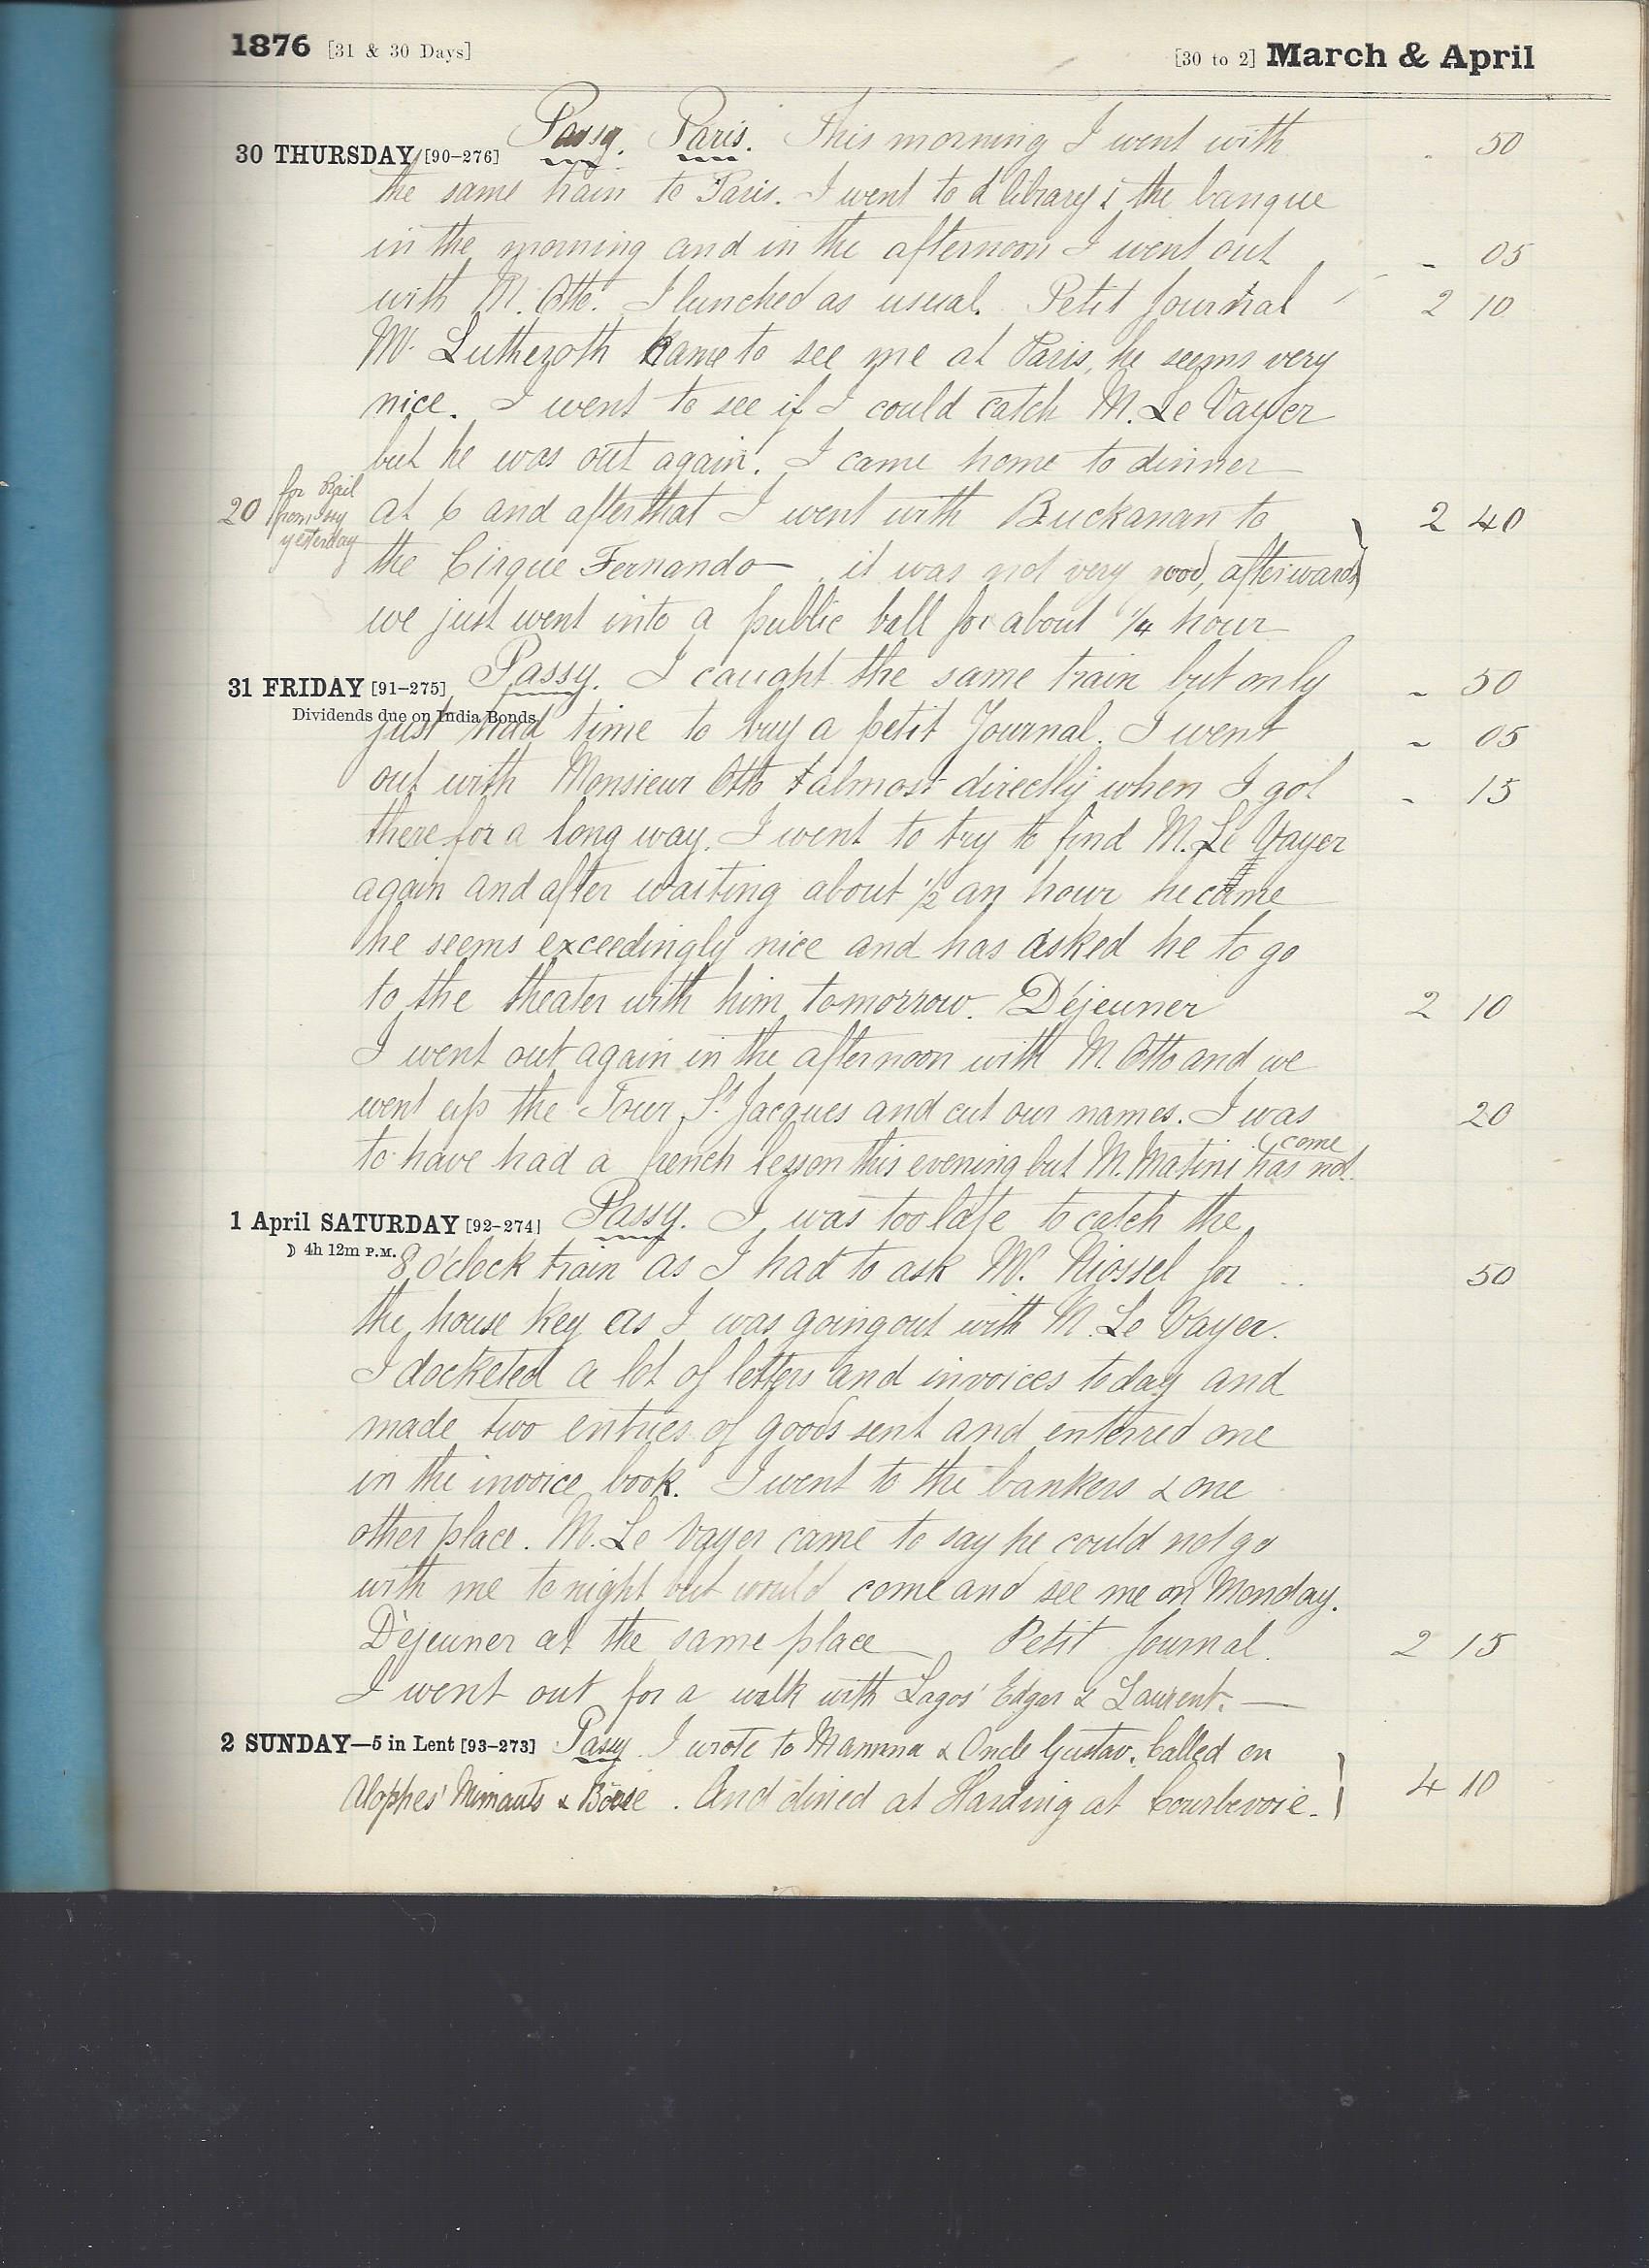 1876 [31 & 30 Days] [30 to 2] March & April
30 THURSDAY [90-276] Passy. Paris. This morning I went with - 50
the same train to Paris. I went to d library & the banque
in the morning and in the afternoon I went out - 05
with M. Otto. I lunched as usual. Petit Journal 2 10
Mr. Lutheroth came to see me at Paris, he seems very
nice. I went to see if I could catch M. Le Vayer
but he was out again. I came home to dinner
20 for Rail from yesterday
at 6 and after that I went with Buckanan to 2 40
the Cirque Fernando, it was not very good, afterwards
we just went into a public ball for about 1/4 hour
31 FRIDAY [91-275] Passy. I caught the same train but only - 50
Dividends due on India Bonds
just had time to buy a petit Journal. I went - 05
out with Monsieur Otto almost directly when I got - 15
there for a long way. I went to try to find M. Le Vayer
again and after waiting about 1/2 an hour he came
he seems exceedingly nice and has asked he to go
to the theater with him tomorrow. Déjeuner 2 10
I went out again in the afternoon with M. Otto and we
went up the Tour St. Jacques and cut our names. I was 20
to have had a french lesson this evening but M. Matini has not come
1 April SATURDAY [92-274] Passy. I was too late to catch the
☽ 4h 12m P.M.
8 o'clock train as I had to ask Mr. for 50
the house key as I was going out with M. Le Vayer.
I docketed a lot of letters and invoices today and
made two entries of goods sent and enterred one
in the invoice book. I went to the bankers & one
other place. M. Le Vayer came to say he could not go
with me tonight but would come and see me on Monday.
Déjeuner at the same place Petit Journal. 2 15
I went out for a walk with Lagos' Edgar & Laurent. —
2 SUNDAY—5 in Lent [93-273] Passy. I wrote to Mamma & Oncle Gustav. Called on
Mimauts & . And dined at Harding at Courbevoie. 4 10